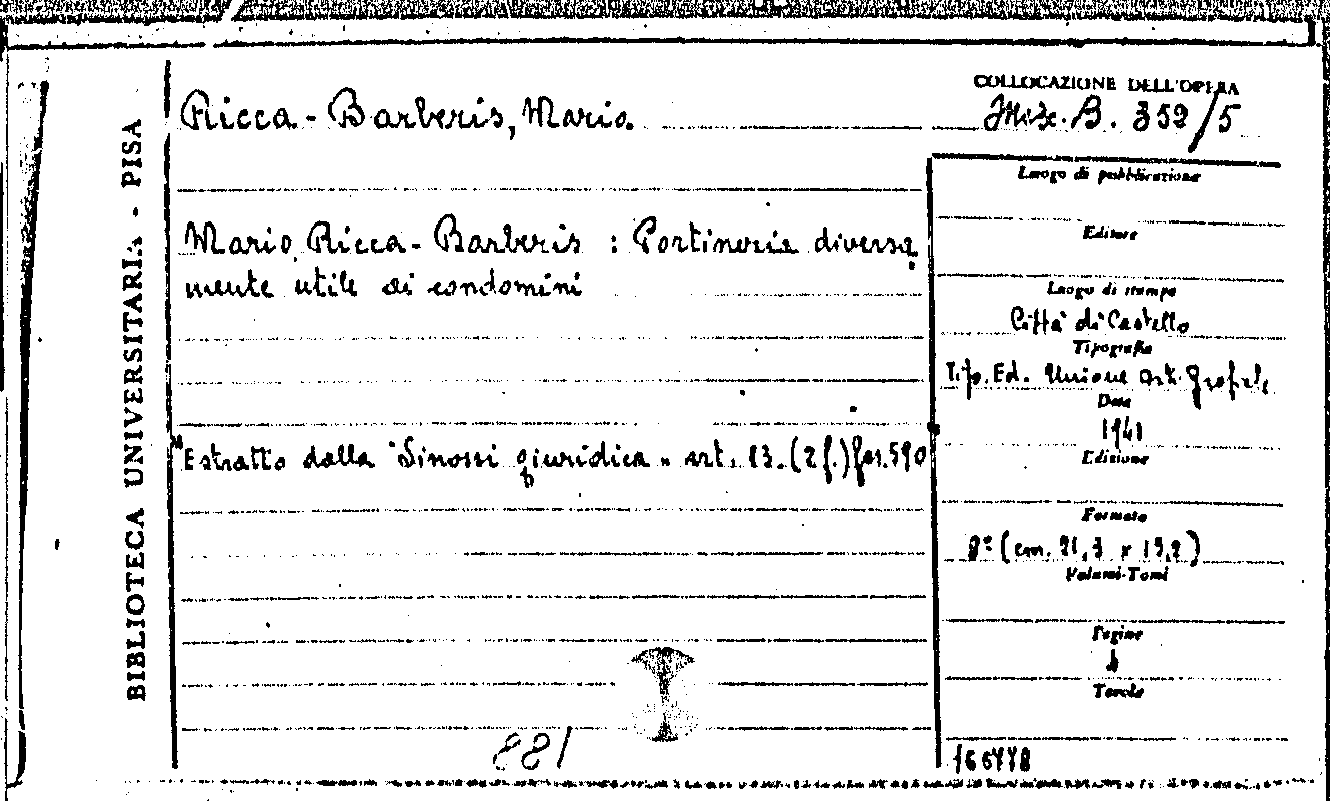 BIBLIOTECA UNIVERSITARIA - PISA
Ricca-Barberis, Mario.
Mario Ricca-Barberis : Portineria diversa
mente utile ai condomini
"Estratto dalla "Sinossi giuridica" art. 13. (2 f.) fas. 590
881
COLLOCAZIONE DELL'OPERA
Misc. B. 352/5
Luogo di pubblicazione
Editore
Luogo di stampa
Città di Castello
Tipografia
Tip. Ed. Unione Arti Grafiche
Data
1941
Edizione
Formato
8º (cm. 21,3 x 15,2)
Volumi-Tomi
Pagine
Tavole